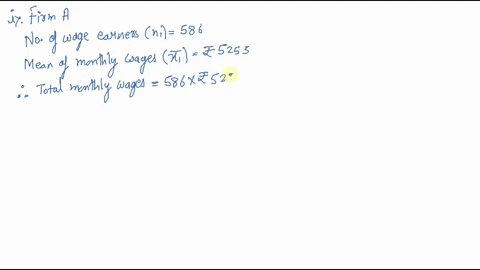 i). Firm A
No. of wage earners (n1) = 586
Mean of monthly wages (x̄1) = ₹ 5253
∴ Total monthly wages = 586 × ₹ 52